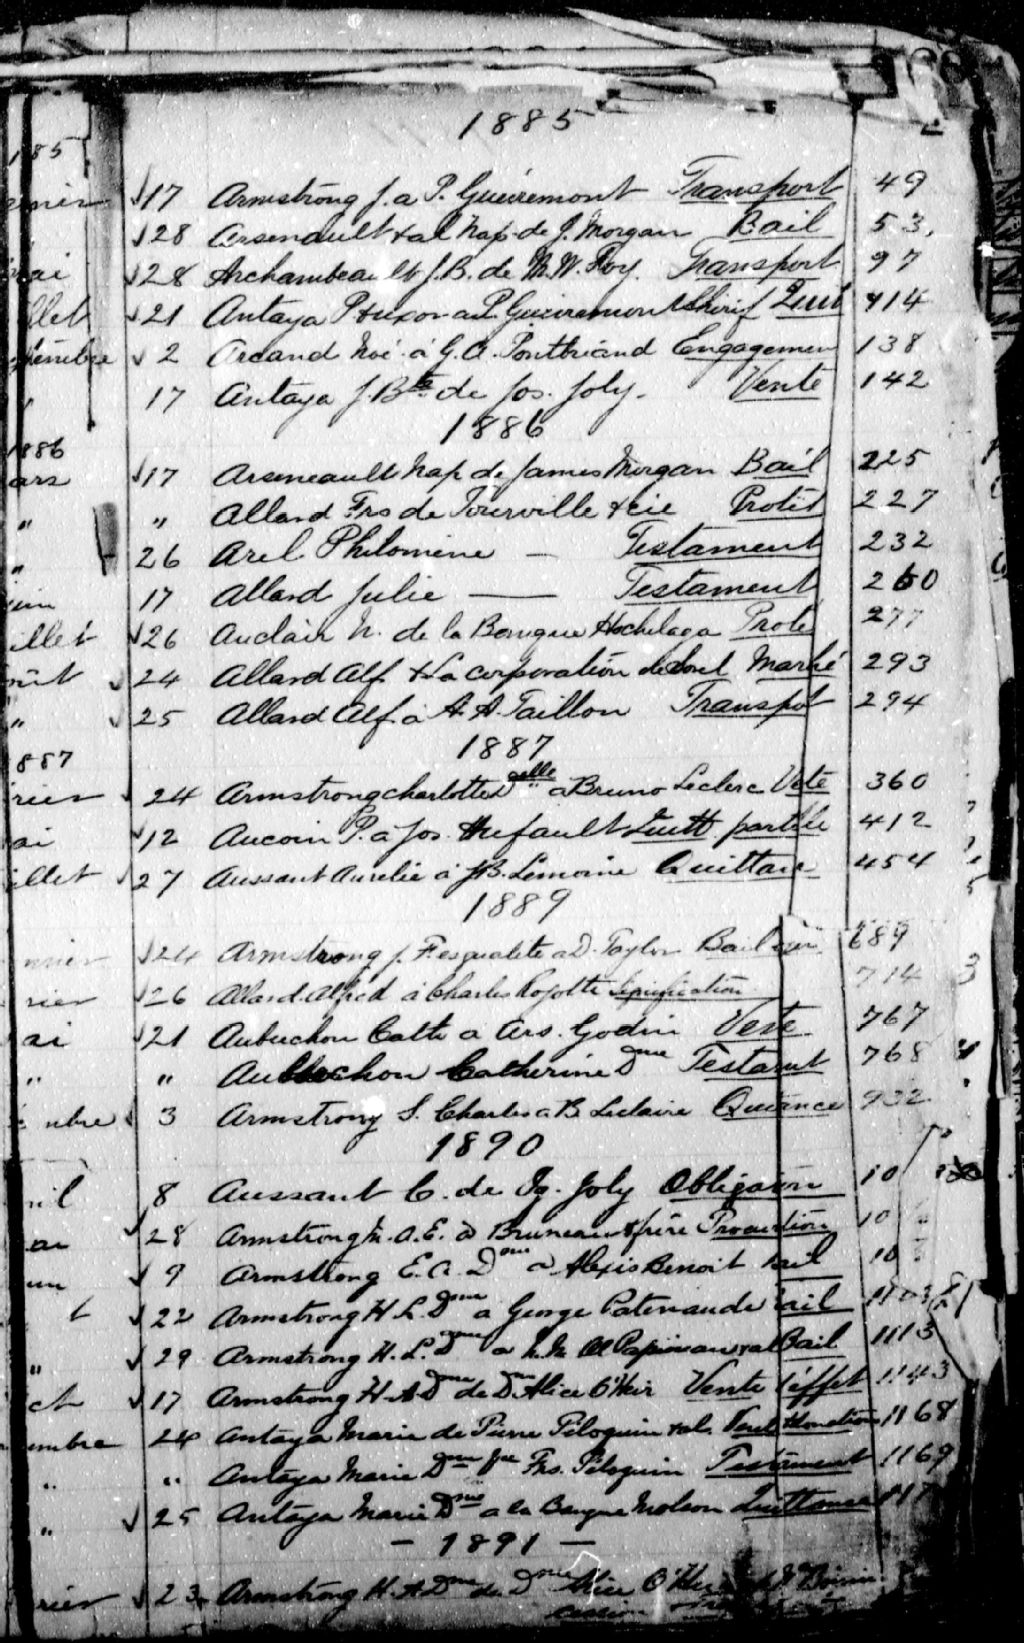 1885
17 Armstrong J. a P. Guévremont Transport 49
28 Arsenault & al Nap. de J. Morgan Bail 53.
ai 28 Archambeault J.B. de M.W. Foy. Transport 97
llet 21 Antaya P & uxor a P. Guévremont Shérif Quit 114
embre 2 Arcand Noé à G.A. Pontbriand Engagemen 138
17 Antaya J.Bte de Jos. Joly. Vente 142
1886
ars 17 Arseneault Nap de James Morgan Bail 225
" " Allard Frs de Tourville & cie Protêt 227
" 26 Arel Philomène — Testament 232
uin 17 Allard Julie — Testament 260
illet 26 Auclair N. de la Banque Hochelaga Proté 277
oût 24 Allard Alf & La corporation de Sorel Marhé 293
" 25 Allard Alf. à A.A. Taillon Transpot 294
1887
rier 24 Armstrong Charlotte Delle à Bruno Leclerc Vete 360
ai 12 Aucoin P. à Jos. partlle 412
illet 27 Aussant Aurélie à JB. Lemoine Quittance 454
1889
nvier 24 Armstrong J. F. esqualite a D. Taylor Bail 689
rier 26 Allard Alfred à Charles Signification 714
ai 21 Aubuchon Cath a Ars. Godin Vete 767
" " Aubuchon Catherine Dme Testamt 768
mbre 3 Armstrong S. Charles a B. Leclaire Quitance 932
1890
ril 8 Aussant C. de Ig. Joly Obligaion 10
ai 28 Armstrong A.E. à Bruneau & frère Procuration 10
un 9 Armstrong E.A. Dme a Alexis Benoit Bail 10
t 22 Armstrong H.L. Dme a George Patenaude Bail 1103
" 29 Armstrong H.L. Dme a Papineau & al Bail 1113
ct 17 Armstrong H.A Dme de Dme Alice O'Heir Vente d'effet 1143
embre 24 Antaya Marie de Pierre Péloquin & al. Vente 1168
" " Antaya Marie Dme Frs. Péloquin Testament 1169
" 25 Antaya Marie Dme a la Banque Molson Quittance 117
— 1891 —
rier 23 Armstrong H.A Dme de Dme Alice